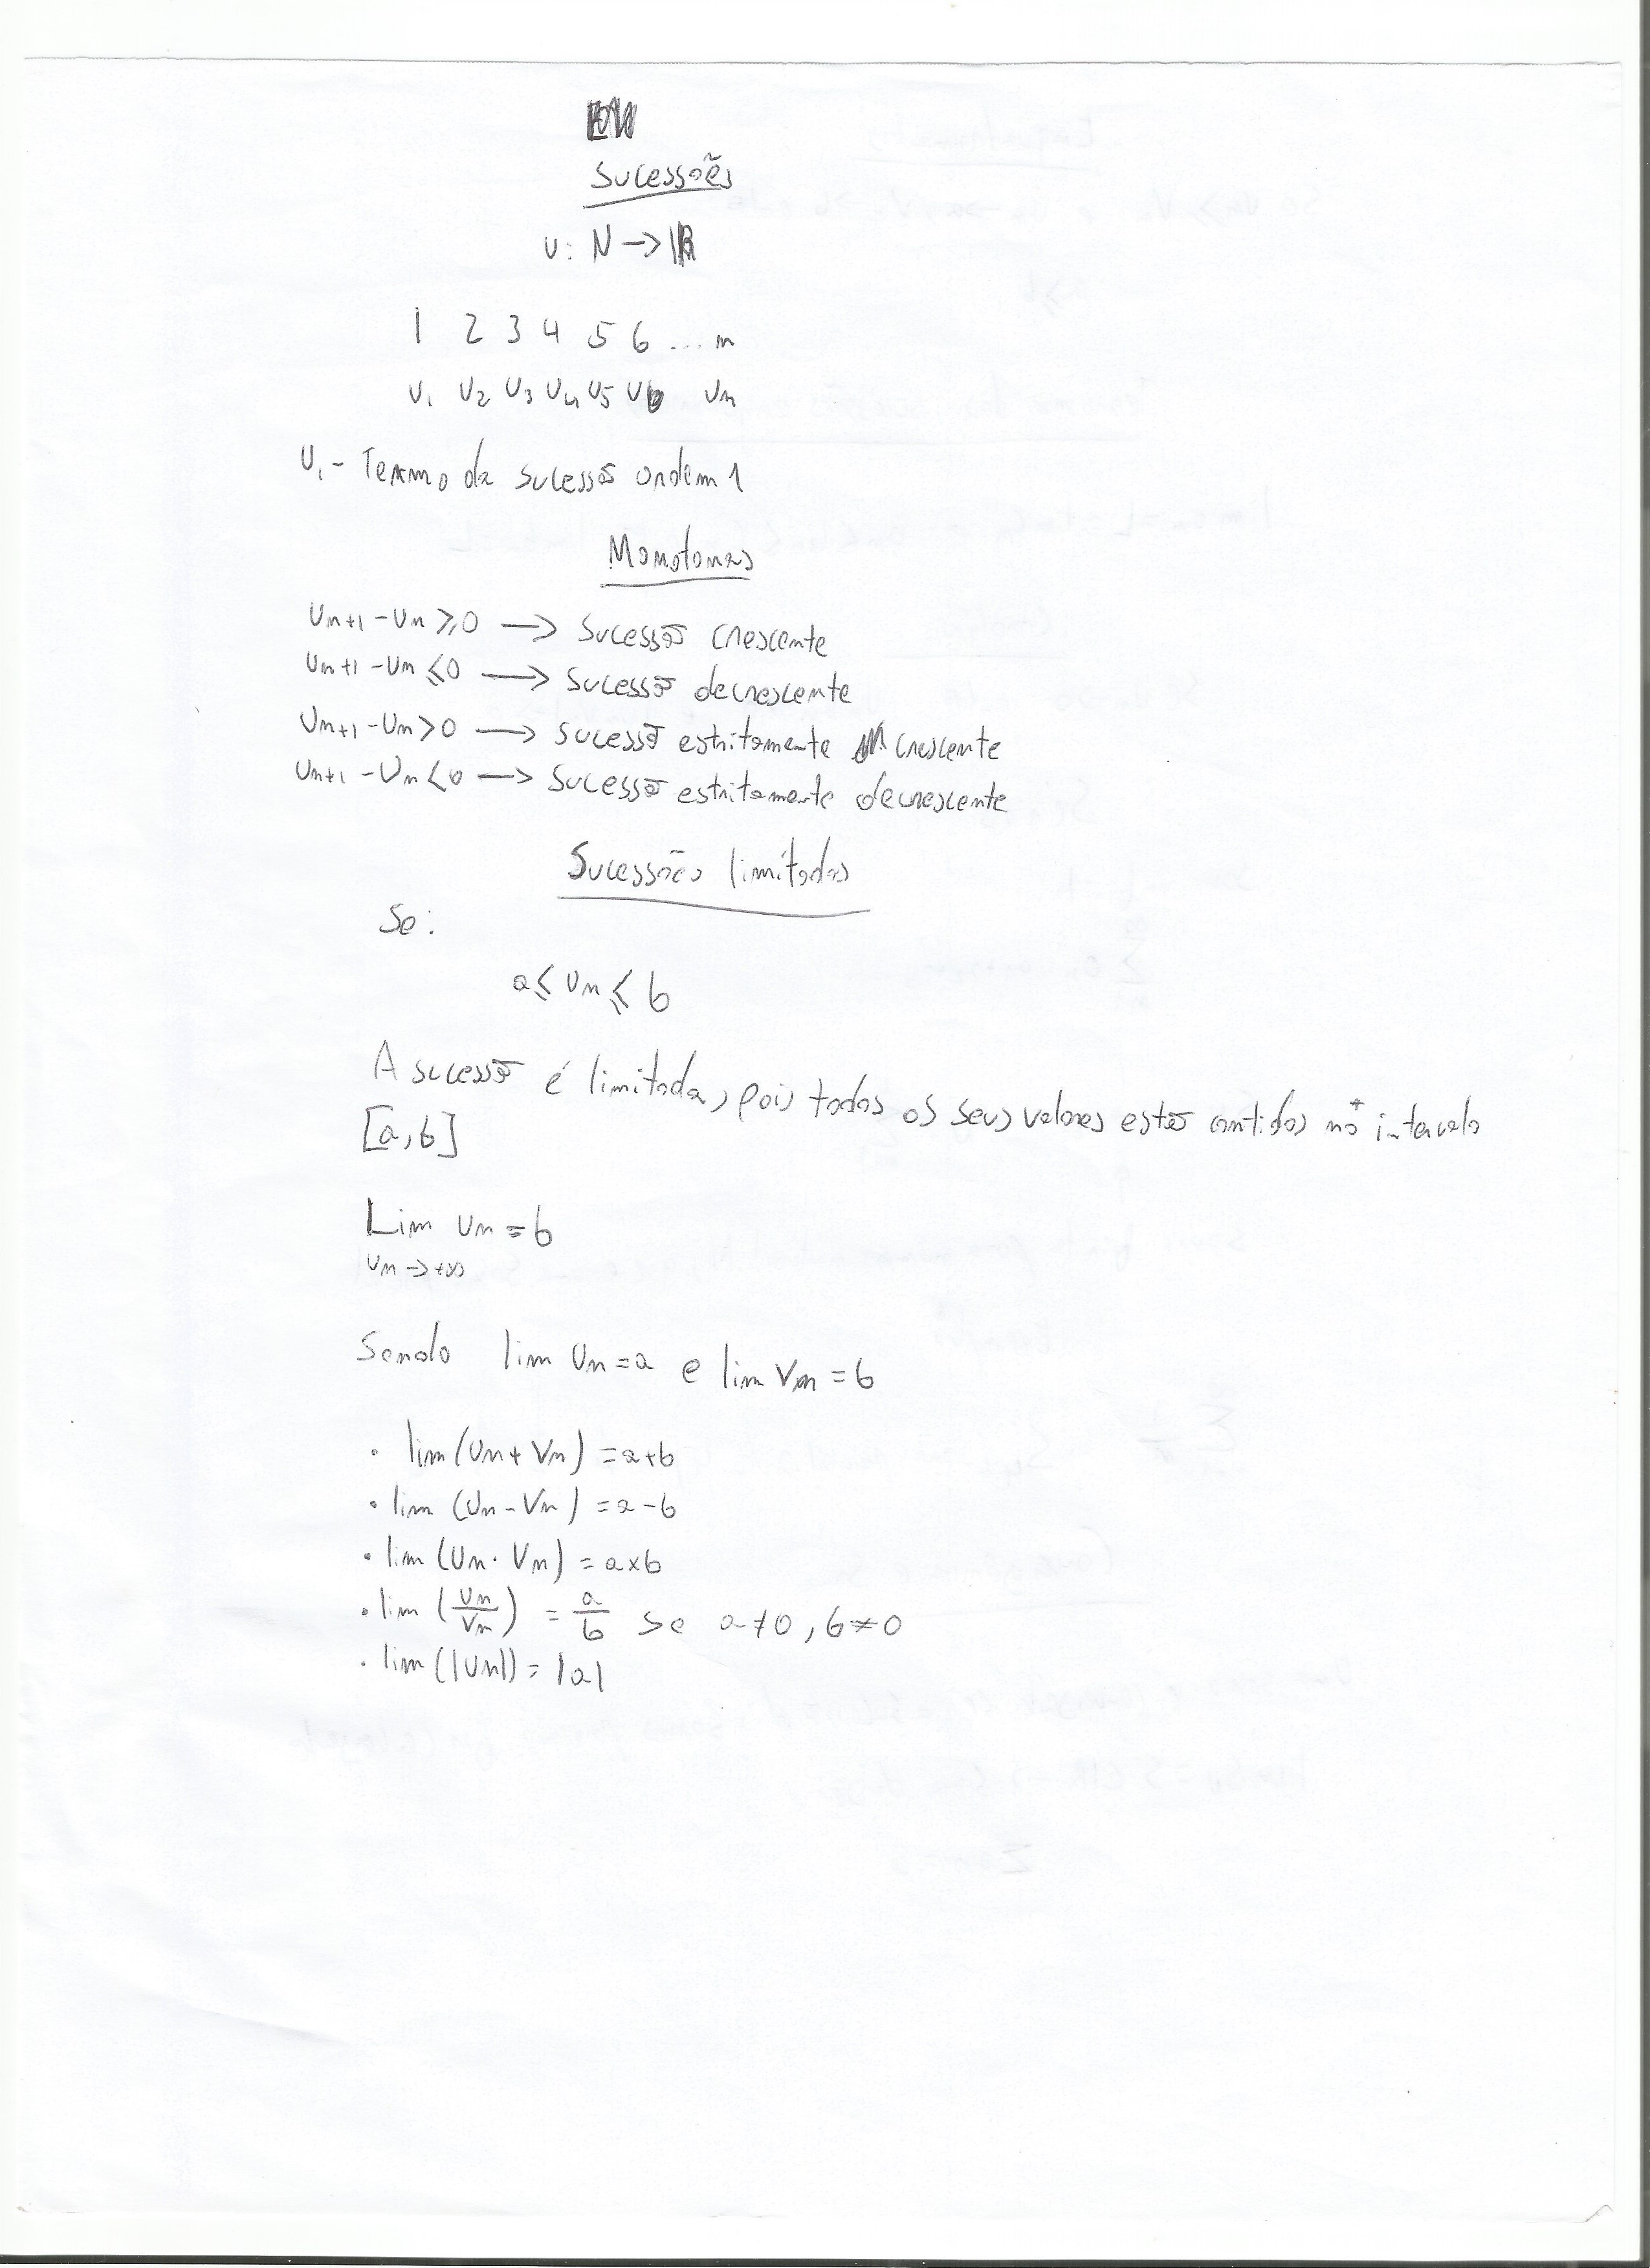 Sucessões
u: N → IR
1 2 3 4 5 6 ... n
u1 u2 u3 u4 u5 u6 un
u1 - Termo da sucessão ordem 1
Monotonas
un+1 - un ≥ 0 → Sucessão crescente
un+1 - un ≤ 0 → Sucessão decrescente
un+1 - un > 0 → Sucessão estritamente crescente
un+1 - un < 0 → Sucessão estritamente decrescente
Sucessões limitadas
Se:
a ≤ un ≤ b
A sucessão é limitada, pois todos os seus valores estão contidos no intervalo
[a, b]
Lim un = b
un → +∞
Sendo lim un = a e lim vn = b
• lim (un + vn) = a + b
• lim (un - vn) = a - b
• lim (un · vn) = a x b
• lim (un/vn) = a/b se a ≠ 0, b ≠ 0
• lim (|un|) = |a|